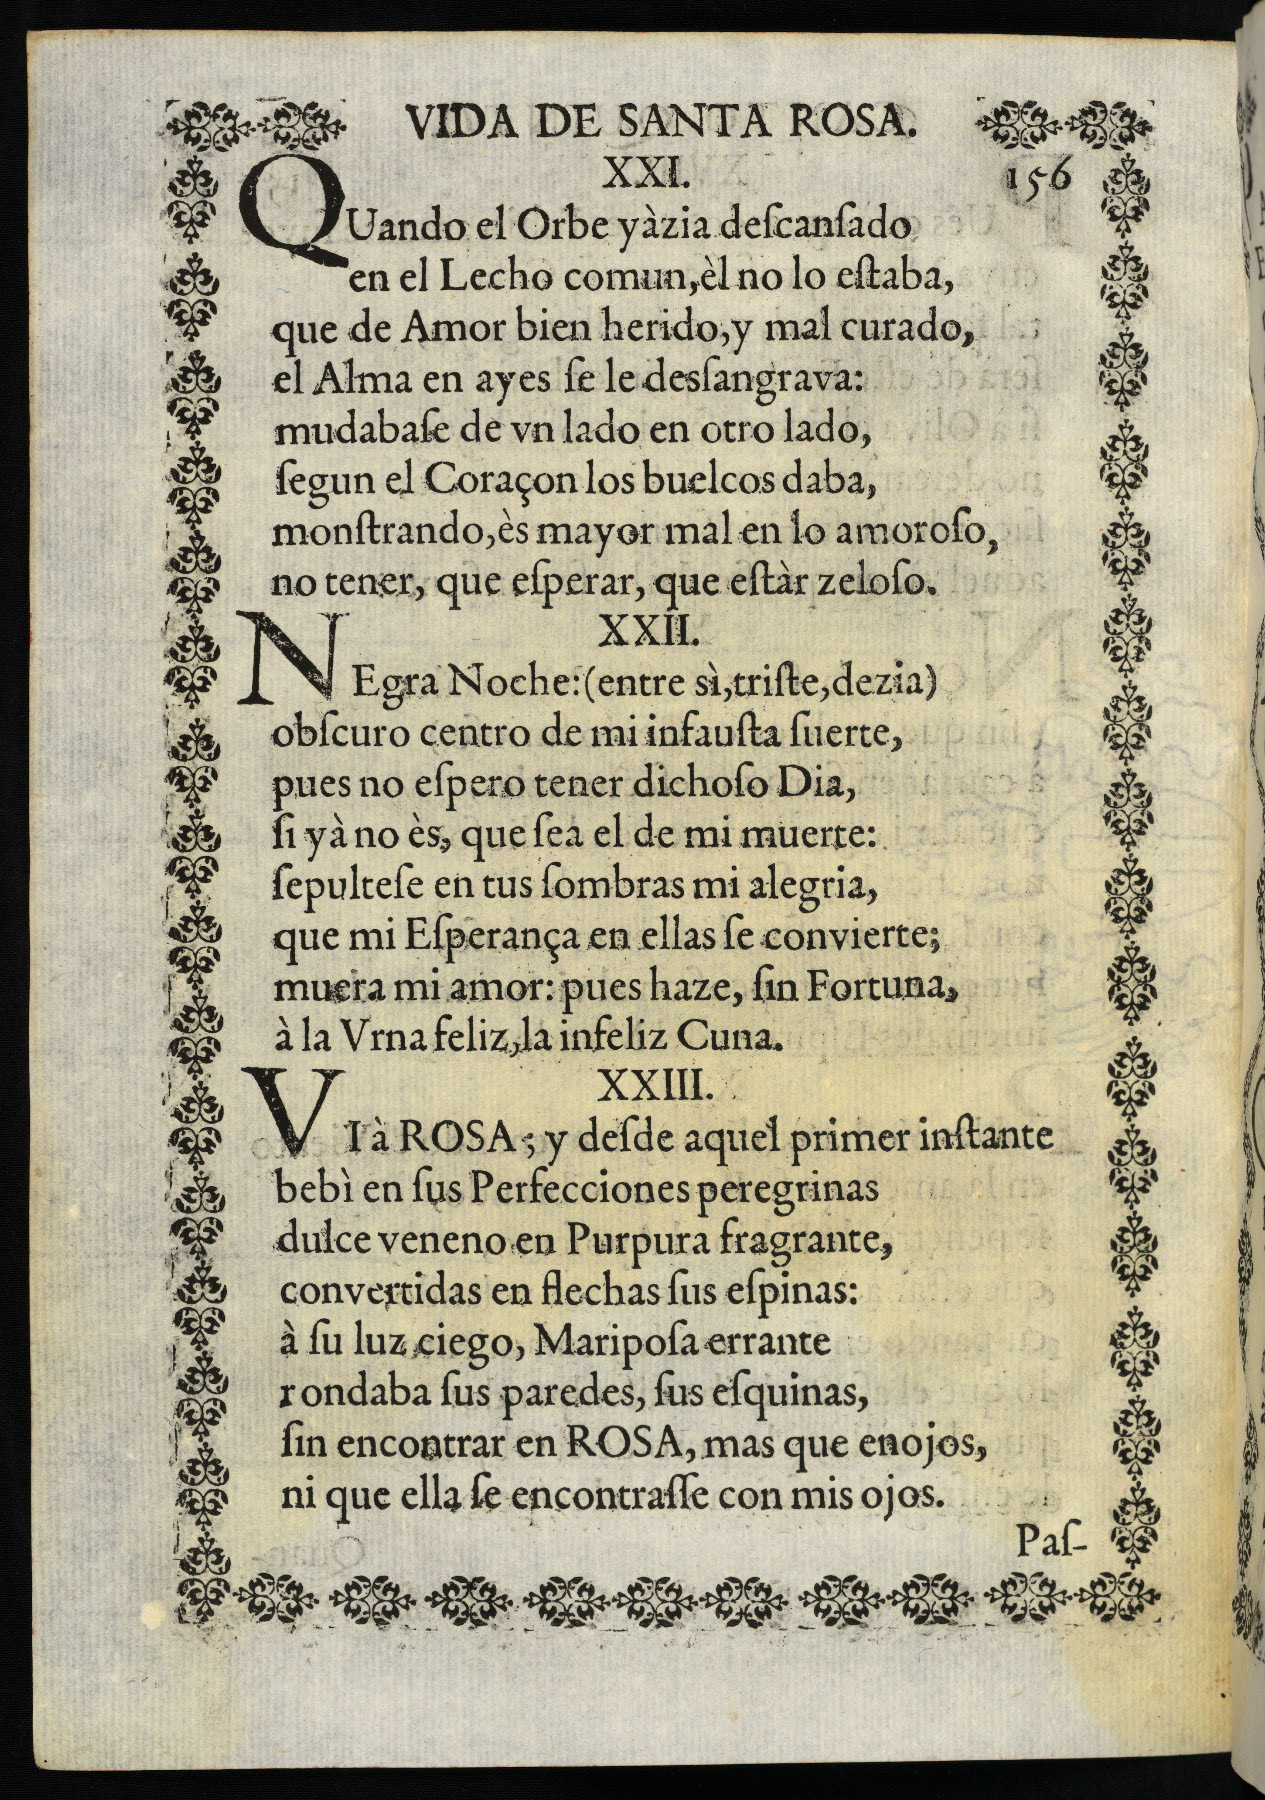 VIDA DE SANTA ROSA.
XXI. 156
QUando el Orbe yàzia deſcanſado
en el Lecho comun,èl no lo eſtaba,
que de Amor bien herido,y mal curado,
el Alma en ayes ſe le desſangrava:
mudabaſe de vn lado en otro lado,
ſegun el Coraçon los buelcos daba,
monſtrando,ès mayor mal en lo amoroſo,
no tener, que eſperar, que eſtàr zeloſo.
XXII.
NEgra Noche:(entre sì,triſte,dezia)
obſcuro centro de mi infauſta ſuerte,
pues no eſpero tener dichoſo Dia,
ſi yà no ès, que ſea el de mi muerte:
ſepulteſe en tus ſombras mi alegria,
que mi Eſperança en ellas ſe convierte;
muera mi amor: pues haze, ſin Fortuna,
à la Vrna feliz,la infeliz Cuna.
XXIII.
VI à ROSA; y deſde aquel primer inſtante
bebì en ſus Perfecciones peregrinas
dulce veneno en Purpura fragrante,
convertidas en flechas ſus eſpinas:
à ſu luz ciego, Maripoſa errante
rondaba ſus paredes, ſus eſquinas,
ſin encontrar en ROSA, mas que enojos,
ni que ella ſe encontraſſe con mis ojos.
Paſ-